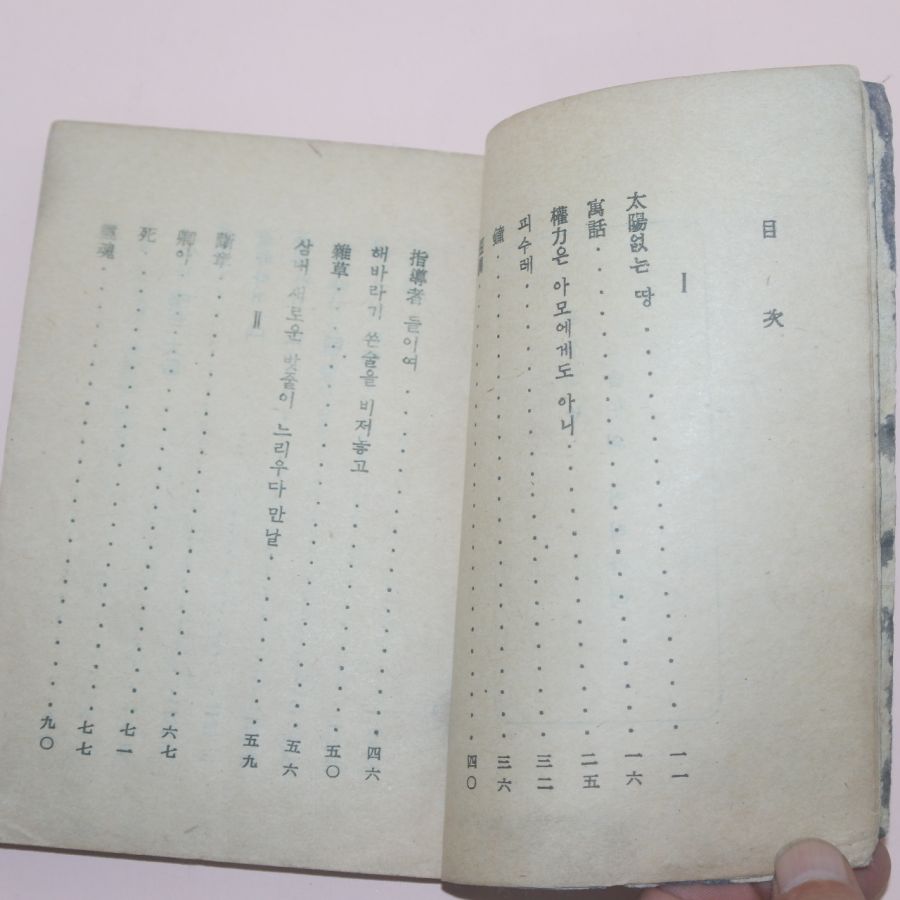 目 次
I
太陽없는 땅 . . . . . . . . . . 一一
寓話 . . . . . . . . . . 一六
權力은 아모에게도 아니 . . . . . . . . . . 二五
피수레 . . . . . . . . . . 三二
. . . . . . . . . . 三六
. . . . . . . . . . 四〇
指導者 들이여 . . . . . . . . . . 四六
해바라기 쓴술을 비저놓고 . . . . . . . . . . 五〇
雜草 . . . . . . . . . . 五六
삼내 새로운 밧줄이 느리우다 만날 . . . . . . . . . . 五九
II
. . . . . . . . . . 六七
. . . . . . . . . . 七一
死 . . . . . . . . . . 七七
靈魂 . . . . . . . . . . 九〇